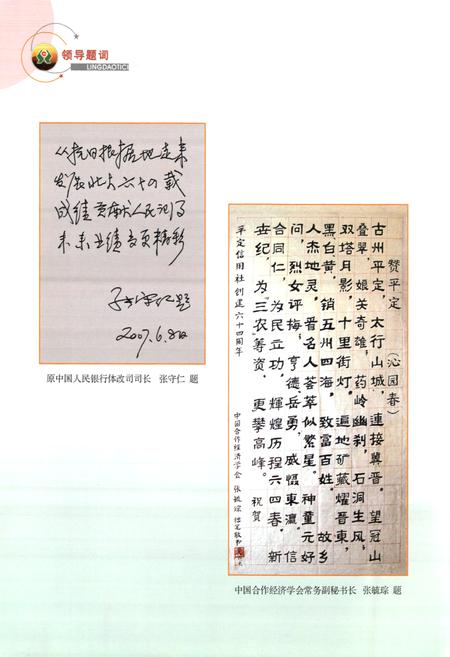 领导题词
LINGDAOTICI
从抗日根据地走来
发展壮大六十四载
成绩贡献人民记了
未来业绩更精彩
张守仁题
2007.6.8日
原中国人民银行体改司司长 张守仁 题
赞平定
(沁园春)
古州平定,太行山城,連接冀晋。望冠山
叠翠,娘关奇雄,药岭幽刹,石洞生风,
双塔月影,十里街灯。遍地矿藏耀晋東,
黑白黄,销五州四海,致富百姓。 故乡
人杰地灵,晋名人荟萃似繁星。神童元好
问,烈女评梅,亨德、岳勇,威慑東瀛。信
合同仁,为民立功,輝煌历程六四春。新
世纪,为“三农”筹资,更攀高峰。 祝贺
平定信用社创建六十四周年
中国合作经济学会 张毓琮
中国合作经济学会常务副秘书长 张毓琮 题